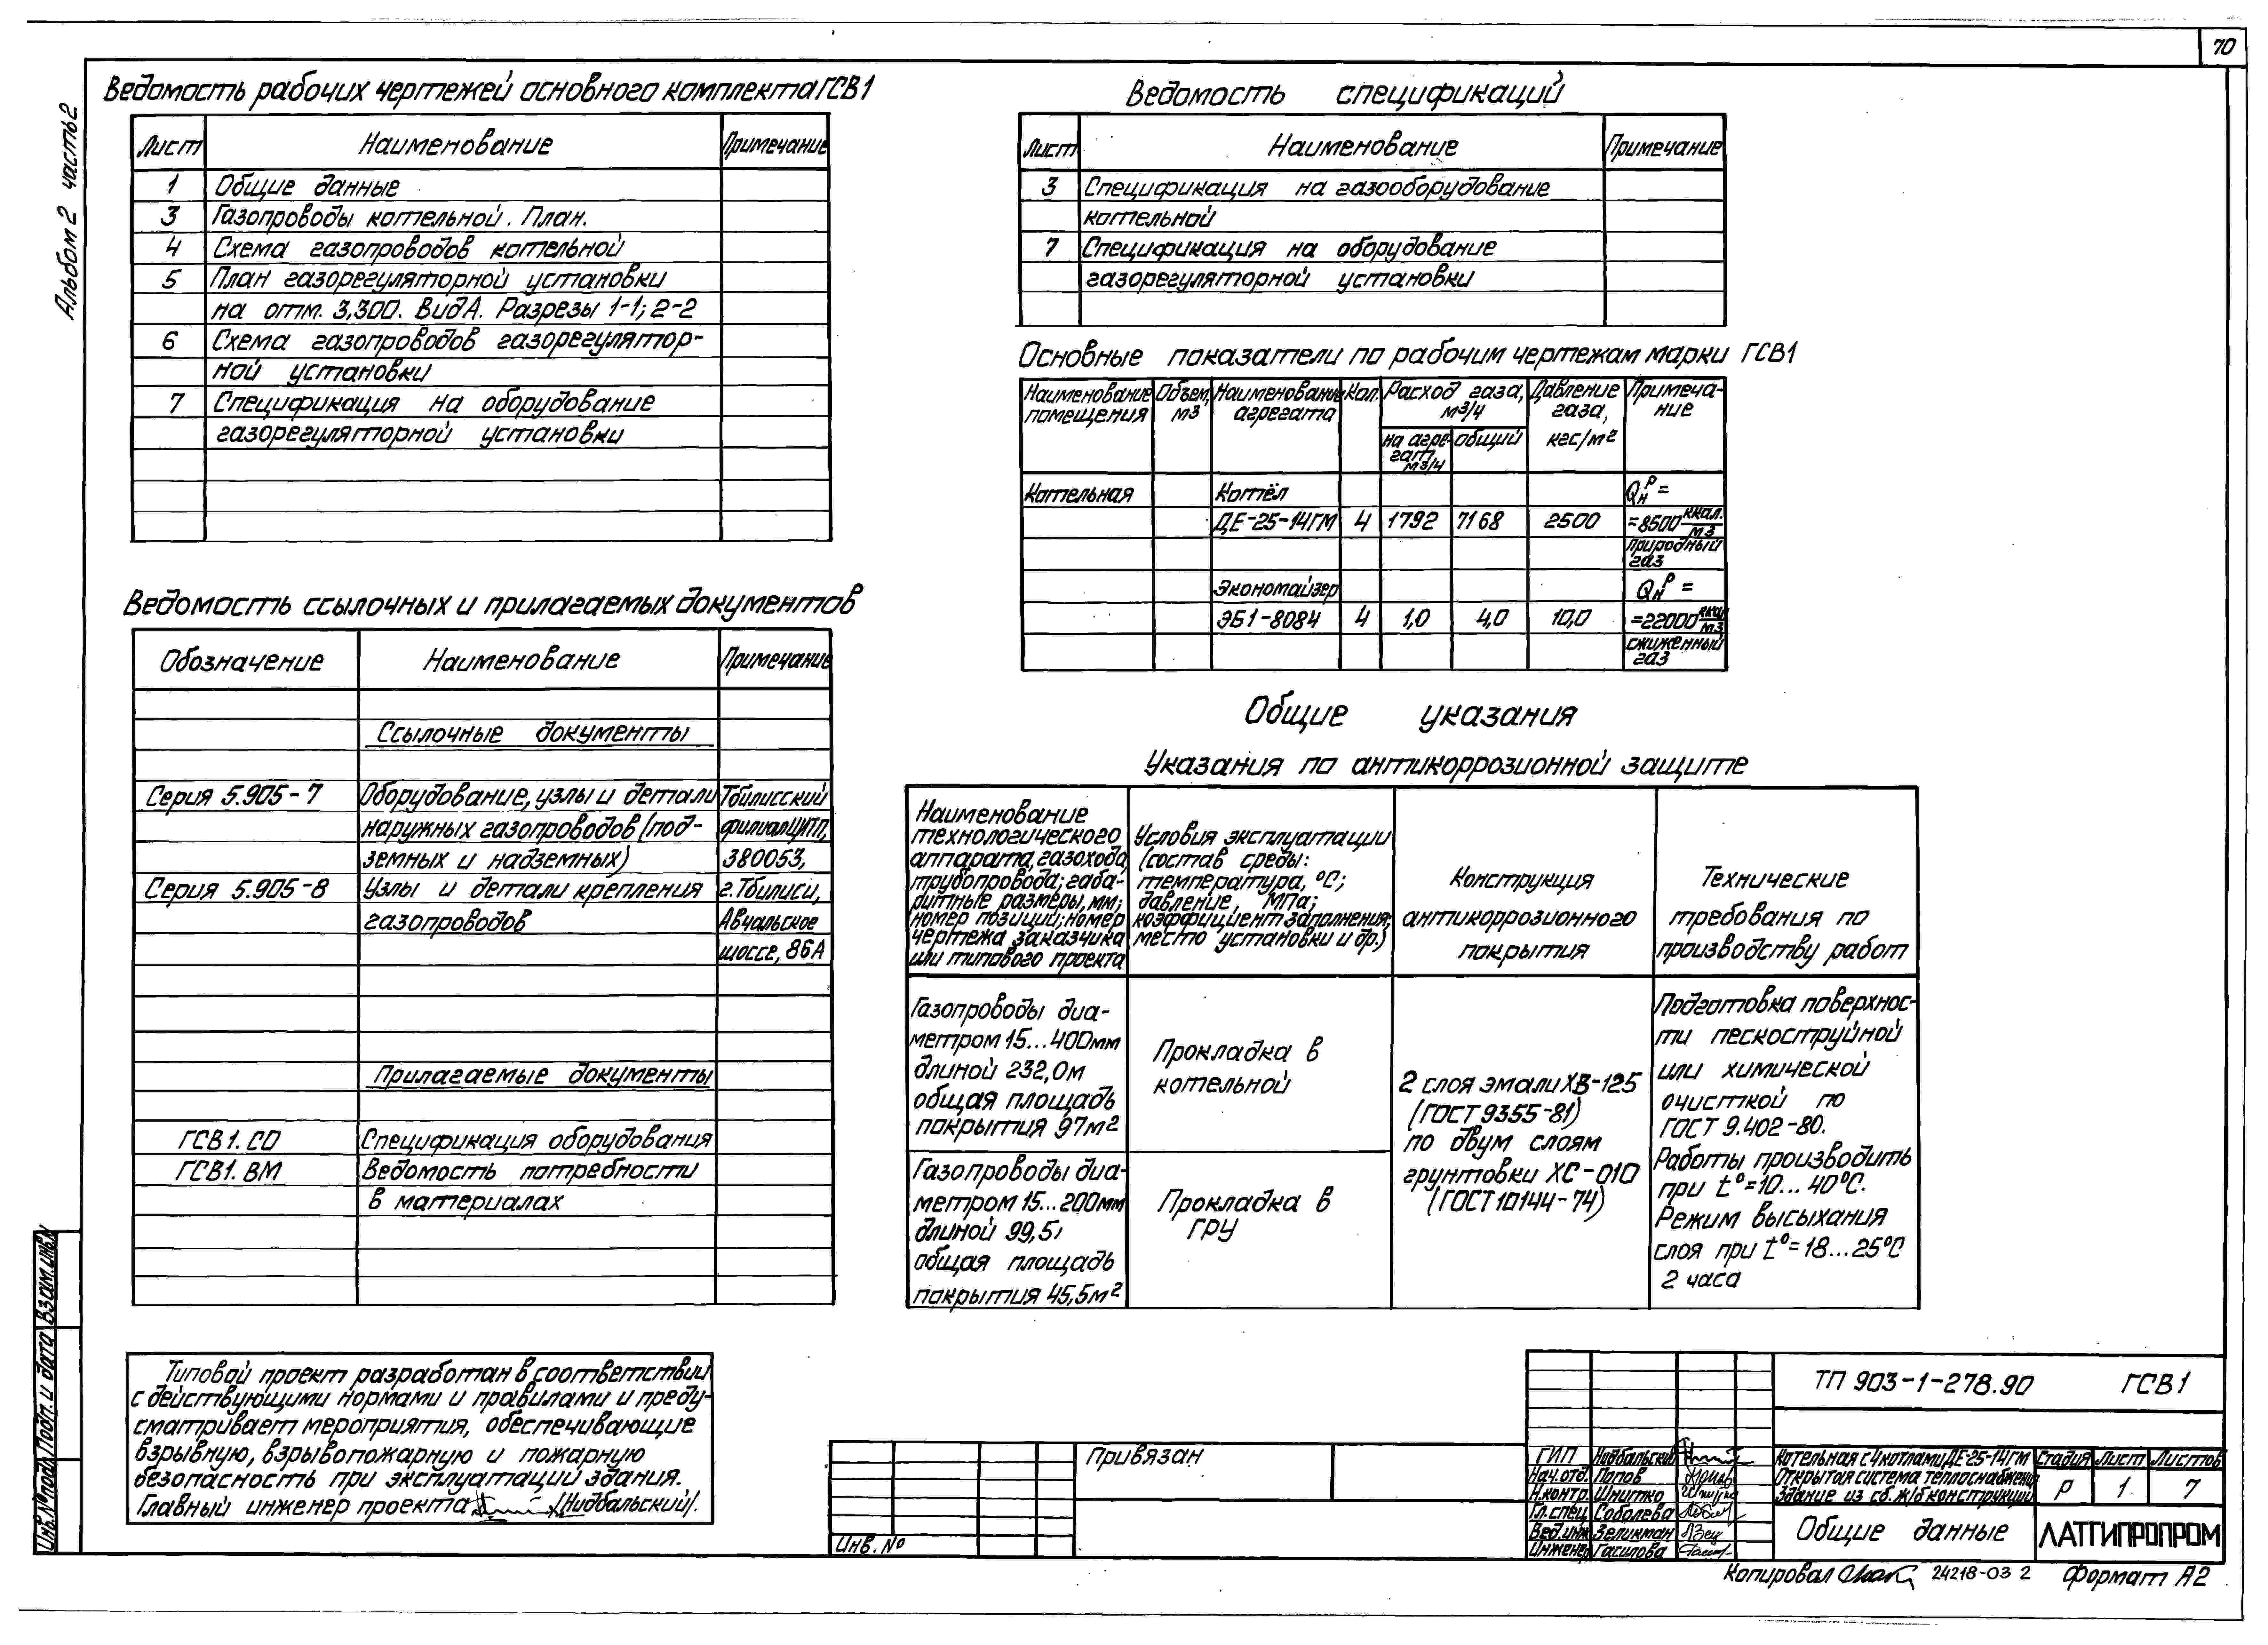 70
Альбом 2 часть 2
Ведомость рабочих чертежей основного комплекта ГСВ1
Лист Наименование Примечание
1 Общие данные
3 Газопроводы котельной. План.
4 Схема газопроводов котельной
5 План газорегуляторной установки
на отм. 3,300. Вид А. Разрезы 1-1; 2-2
6 Схема газопроводов газорегулятор-
ной установки
7 Спецификация на оборудование
газорегуляторной установки
Ведомость спецификаций
Лист Наименование Примечание
3 Спецификация на газооборудование
котельной
7 Спецификация на оборудование
газорегуляторной установки
Основные показатели по рабочим чертежам марки ГСВ1
Наименование помещения Объем, м3 Наименование агрегата Кол. Расход газа, м3/ч Давление газа, кгс/м2 Примеча-
ние
на агре-
гат, м3/ч общий
Котельная Котёл Qнр =
ДЕ-25-14ГМ 4 1792 7168 2500 =8500 ккал./м3
природный
газ
Экономайзер Qнр =
ЭБ1-808И 4 1,0 4,0 10,0 =22000 ккал/м3
сжиженный
газ
Ведомость ссылочных и прилагаемых документов
Обозначение Наименование Примечание
Ссылочные документы
Серия 5.905-7 Оборудование, узлы и детали Тбилисский
наружных газопроводов (под- филиал ЦИТП,
земных и надземных) 380053,
Серия 5.905-8 Узлы и детали крепления г. Тбилиси,
газопроводов Авчальское
шоссе, 86А
Прилагаемые документы
ГСВ1. СО Спецификация оборудования
ГСВ1. ВМ Ведомость потребности
в материалах
Общие указания
Указания по антикоррозионной защите
Наименование
технологического
аппарата, газохода,
трубопровода; габа-
ритные размеры, мм;
номер позиций; номер
чертежа заказчика
или типового проекта
Условия эксплуатации
(состав среды:
температура, °С;
давление, МПа;
коэффициент заполнения;
место установки и др.)
Конструкция
антикоррозионного
покрытия
Технические
требования по
производству работ
Газопроводы диа-
метром 15...400мм
длиной 232,0м
общая площадь
покрытия 97м2
Прокладка в
котельной
Газопроводы диа-
метром 15...200мм
длиной 99,5
общая площадь
покрытия 45,5м2
Прокладка в
ГРУ
2 слоя эмали ХВ-125
(ГОСТ 9355-81)
по двум слоям
грунтовки ХС-010
(ГОСТ 10144-74)
Подготовка поверхнос-
ти пескоструйной
или химической
очисткой по
ГОСТ 9.402-80.
Работы производить
при t°=10...40°С.
Режим высыхания
слоя при t°=18...25°С
2 часа
Типовой проект разработан в соответствии
с действующими нормами и правилами и преду-
сматривает мероприятия, обеспечивающие
взрывную, взрывопожарную и пожарную
безопасность при эксплуатаций здания.
Главный инженер проекта /Нидбальский/.
Инв.№подл. Подп. и дата Взам.инв.№
Привязан
Инв. №
ТП 903-1-278.90 ГСВ1
ГИП Нидбальский
Нач.отд. Попов
Н.контр. Шнитко
Гл.спец. Соболева
Вед.инж. Зеликман
Инженер Гасилова
Котельная с 4 котлами ДЕ-25-14ГМ
Открытая система теплоснабжения
Здание из сб. ж/б конструкций
Стадия Лист Листов
Р 1 7
Общие данные
ЛАТГИПРОПРОМ
Копировал 24218-03 2 Формат А2